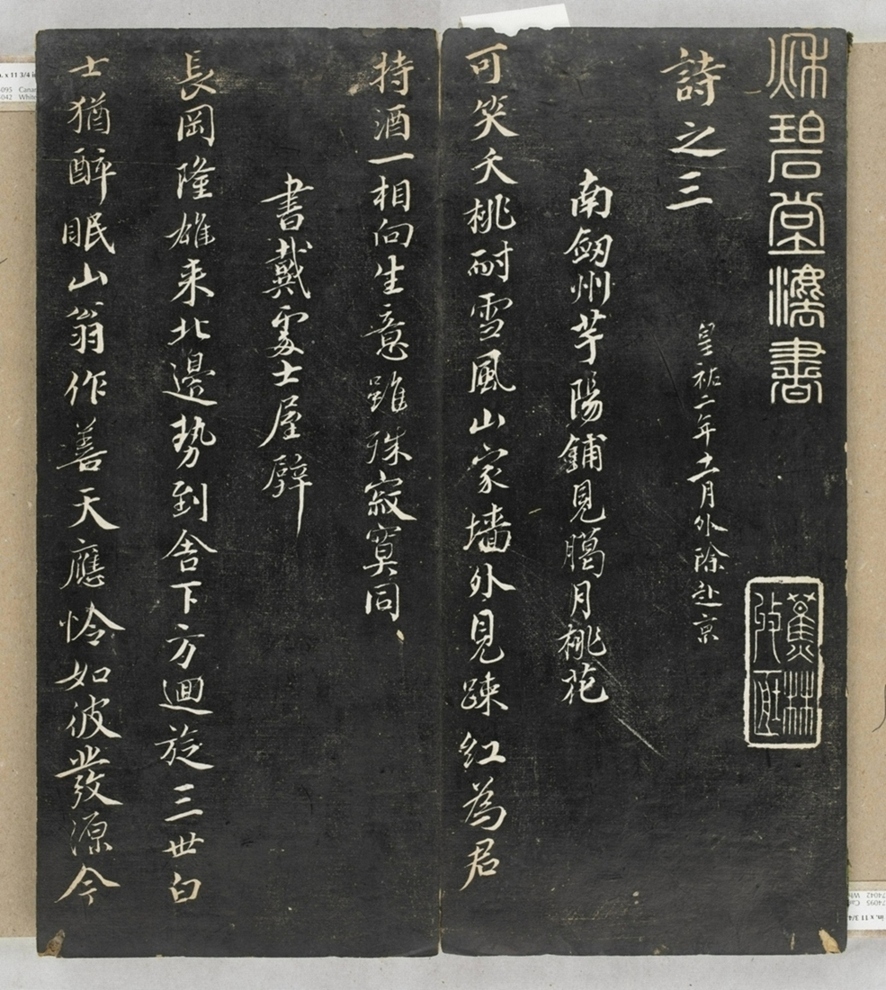 秋碧堂灋書
蕉林
詩之三 皇祐二年十一月外除赴京
南劒州芋陽鋪見臈月桃花
可笑夭桃耐雪風山家墻外見疎紅為君
持酒一相向生意雖殊寂寞同
書戴處士屋壁
長岡隆雄來北邊勢到舍下方迴旋三世白
士猶醉眠山翁作善天應憐如彼發源今